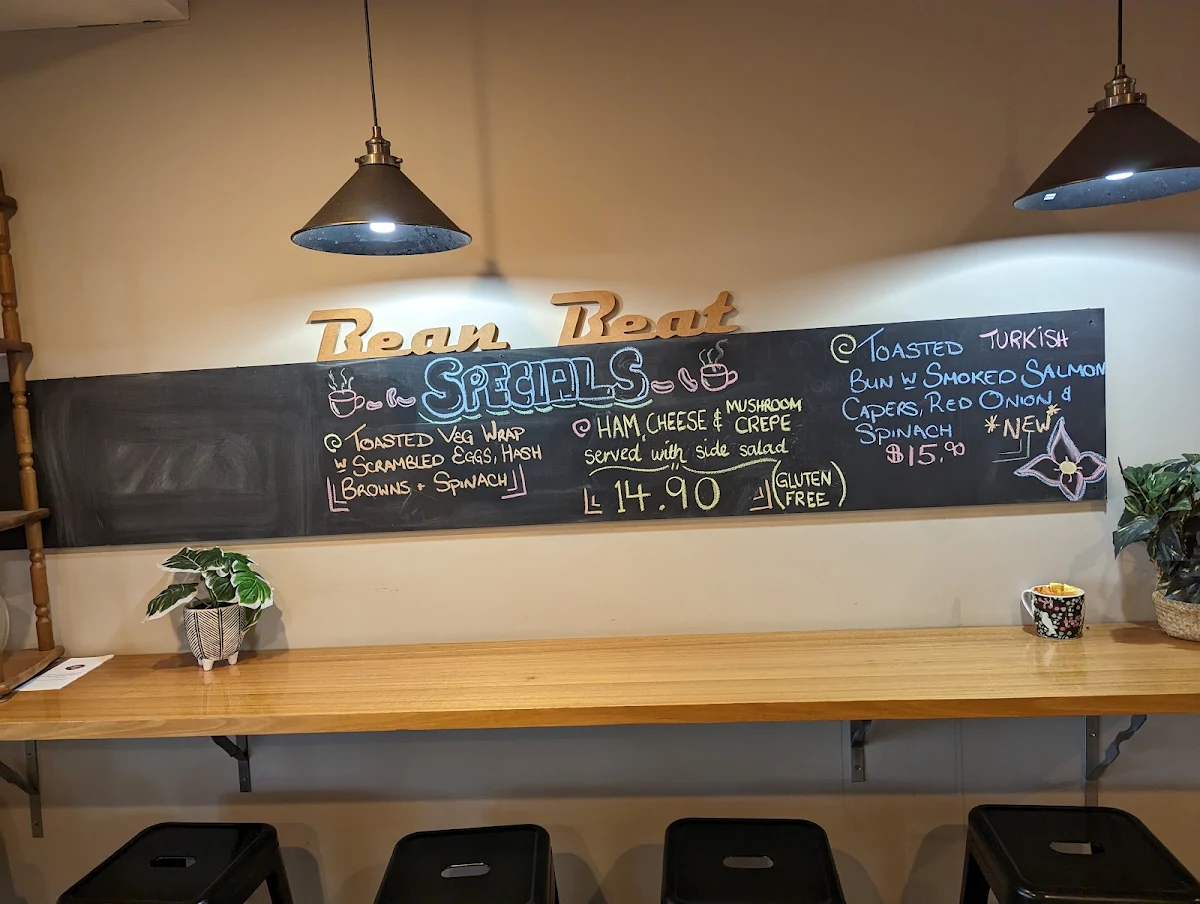 Bean Beat
SPECIALS
TOASTED VEG WRAP
w SCRAMBLED EGGS, HASH
BROWNS + SPINACH
HAM, CHEESE & MUSHROOM
CREPE
served with side salad
14.90
(GLUTEN
FREE)
TOASTED TURKISH
BUN w SMOKED SALMON
CAPERS, RED ONION &
SPINACH
*NEW*
$15.90